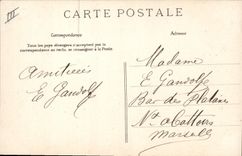 III
CARTE POSTALE
Correspondance
Adresse
Tous les pays étrangers n'acceptent pas la
correspondance au recto, se renseigner à la Poste.
Amitiés
E Gandolf
Madame
E Gandolfe
Bar des Platanes
Marseille